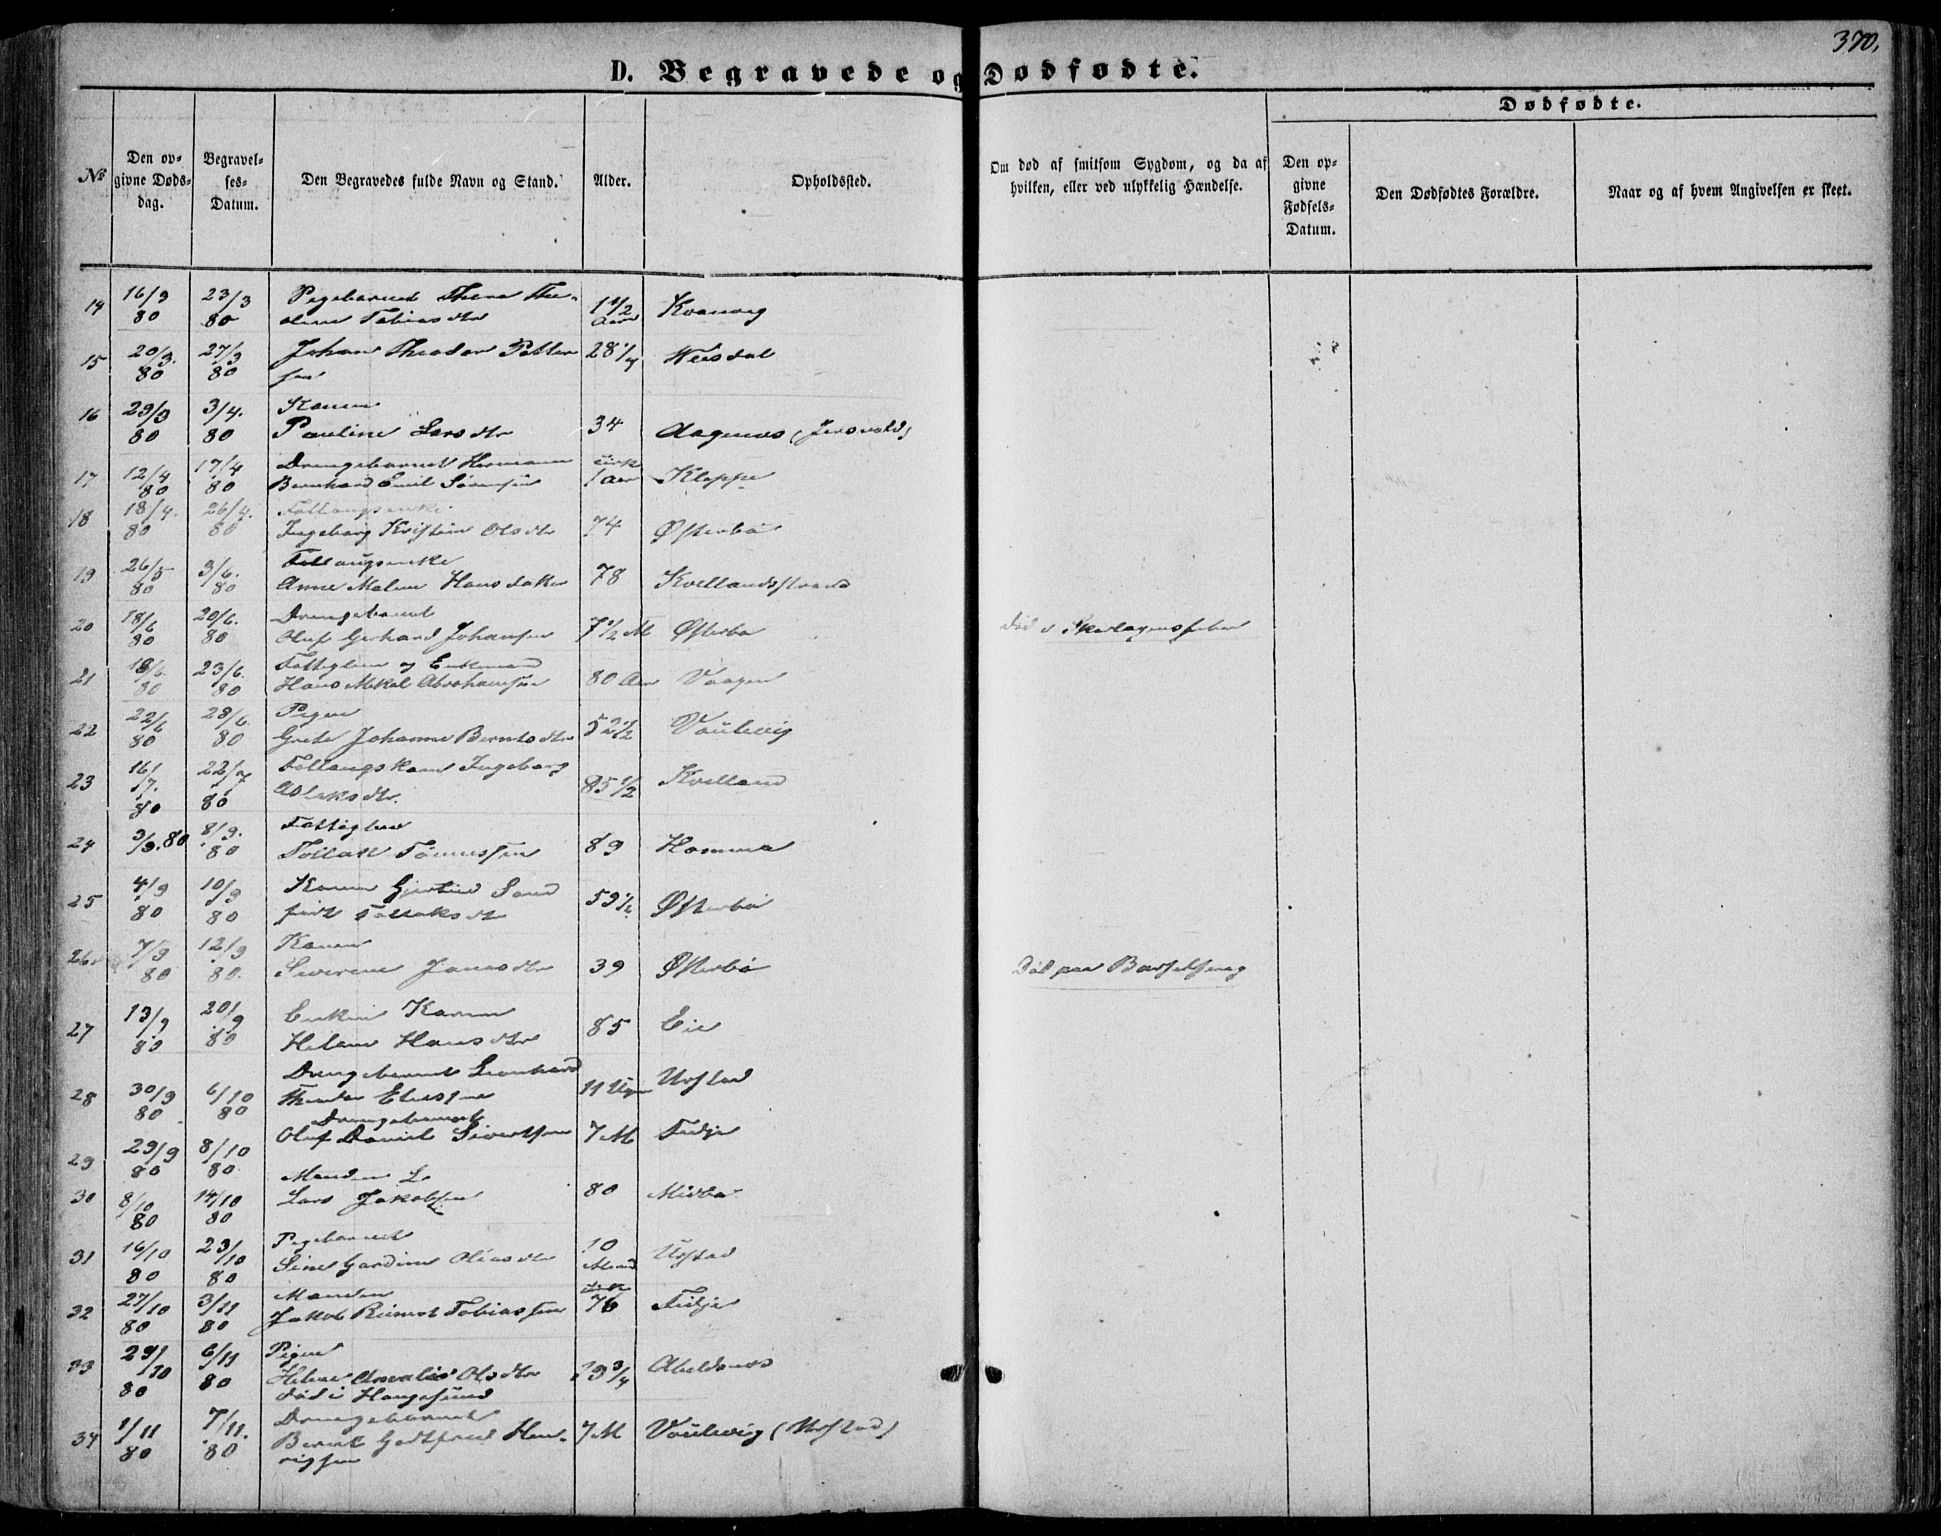 370.
D. Begravede og Dødfødte.
Dødfødte.
No
Den opgivne Dødsdag.
Begravelses-Datum.
Den Begravedes fulde Navn og Stand.
Alder.
Opholdssted.
Om død af smitsom Sygdom, og da af hvilken, eller ved ulykkelig Hændelse.
Den opgivne Fødsels-Datum.
Den Dødfødtes Forældre.
Naar og af hvem Angivelsen er skeet.
14 16/3 80 23/3 80 Pigebarnet Thena The-
oline Tobiasdtr 1 1/2 Aar
15 20/3. 80 27/3 80 Johan Theodor Petter
sen 28 1/4
16 29/3 80 3/4. 80 Konen
Pauline Larsdtr 34
17 12/4 80 17/4 80 Drengebarnet Hermann
Bernhard Emil Sørensen cirk 1 Aar Kleppe
18 18/4. 80 26/4. 80
Ingeborg Kristine Olsdtr 74 Østerbø
19 26/5 80 3/6. 80 Føllaugsenke
Anne Malene Hansdatter 78 Kvellandsstrand
20 18/6 80 20/6. 80 Drengebarnet
Oluf Gerhard Johansen 7 1/2 M Østerbø
Død af Skarlagensfeber
21 18/6. 80 23/6. 80 Fattiglem og Enkemand
Hans Mikal Abrahamsen 80 Aar Vaagen
22 22/6 80 28/6. 80 Pigen
Grete Johanne Berntsdtr 52 1/2 Voulevig
23 16/7. 80 22/7 80 Føllaugskone Ingeborg
Aslaksdtr. 85 1/2 Kvelland
24 3/9. 80 8/9. 80 Fattiglem
Tollak Tønnessen 89 Homme
25 4/9 80 10/9 80 Konen Gjertine Sand
født Tollaksdtr 59 1/2 Østerbø
26. 7/9 80 12/9 80. Konen
Severine Jonasdtr 39 Østerbø
Død paa Barselseng
27 13/9 80 20/9 80 Enken Karen
Helene Hansdtr 85 Eie
28 30/9 80 6/10 80 Drengebarnet Leonhard
Theodor Eliassen 11 Uger Urstad
29 29/9 80 8/10 80 Drengebarnet
Oluf Daniel Sivertsen 7 M Fidje
30 8/10 80 14/10 80 Manden L.
Lars Jakobsen 80 Midbø
31 16/10 80 23/10 80 Pigebarnet
Sine Gardine Oliasdtr 10 Maaned Urstad
32 27/10 80 3/11 80 Manden
Jakob Reinert Tobiassen cirk 76 Fidje
33 29/10 80 6/11 80 Pigen
Helene Amalie Olsdtr 29 3/4 Abelsnes
død i Haugesund
34 1/11 80 7/11. 80 Drengebarnet
Berent Gotfred Hen-
rigsen 7 M Voulevig (Urstad)